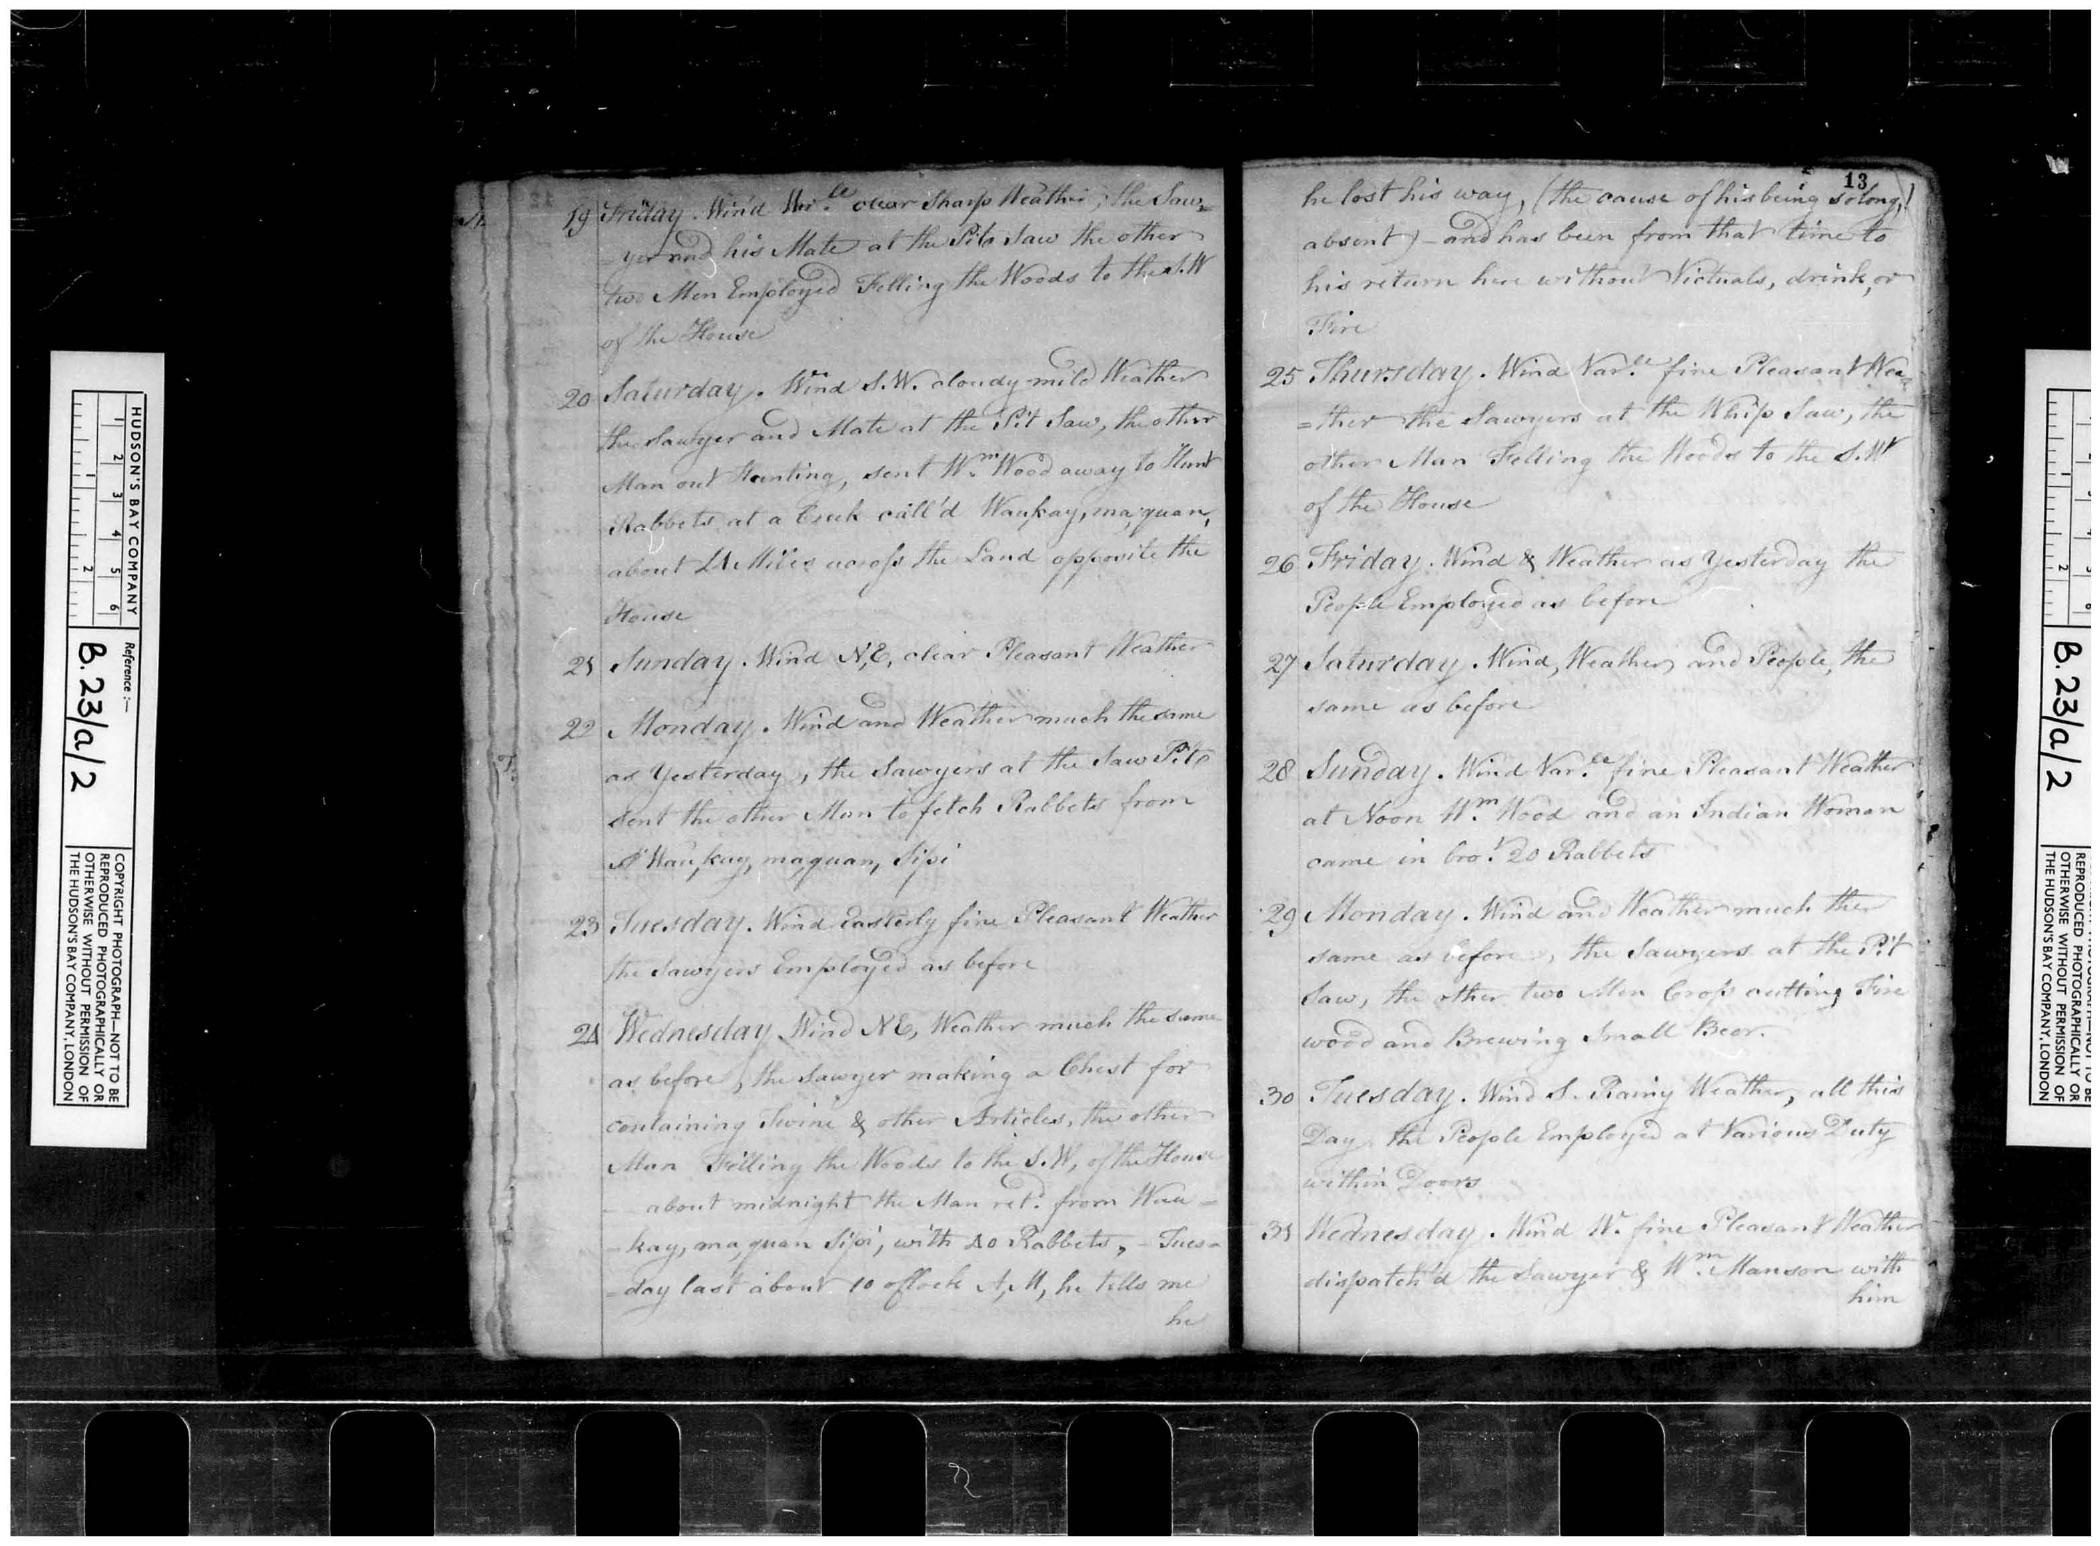 19 Friday. Wind Var.le clear Sharp Weather, the Saw=
=yer and his Mate at the Pit Saw the other
two Men Employed Felling the Woods to the S.W
of the House
20 Saturday. Wind S.W. cloudy mild Weather
the Sawyer and Mate at the Pit Saw, the other
Man out Hunting, sent Wm. Wood away to Hunt
Rabbets at a Creek call'd Waupay, ma,quan,
about 14 Miles across the Land opposite the
House
21 Sunday. Wind N,E, clear Pleasant Weather
22 Monday. Wind and Weather much the same
as Yesterday, the Sawyers at the Saw Pit
sent the other Man to fetch Rabbets from
Wau,kay, ma,quan, Sipi
23 Tuesday. Wind Easterly fine Pleasant Weather
the Sawyers Employed as before
24 Wednesday Wind NE, Weather much the same
as before, the Sawyer making a Chest for
containing Twine & other Articles, the other
Man Felling the Woods to the S.W, of the House
about midnight the Man retd. from Wau=
=kay, ma,quan Sipi, with 40 Rabbets, - Tues=
=day last about 10 oClock A,M, he tells me
he
13
he lost his way, (the cause of his being so long,
absent) - and has been from that time to
his return here without Victuals, drink, or
Fire
25 Thursday. Wind Var.le fine Pleasant Wea=
=ther the Sawyers at the Whip Saw, the
other Man Felling the Woods to the S.W
of the House
26 Friday. Wind & Weather as Yesterday the
People Employed as before
27 Saturday. Wind, Weather, and People, the
same as before
28 Sunday. Wind Var.le fine Pleasant Weather
at Noon Wm. Wood and an Indian Woman
came in bro.t 20 Rabbets
29 Monday. Wind and Weather much the
same as before, the Sawyers at the Pit
Saw, the other two Men Cross cutting Fire
wood and Brewing Small Beer.
30 Tuesday. Wind S. Rainy Weather, all this
Day, the People Employed at Various Duty
within Doors
31 Wednesday. Wind W. fine Pleasant Weather
dispatch'd the Sawyer & Wm. Manson with
him
HUDSON'S BAY COMPANY
1 2 3 4 5 6
1 2
Reference :—
B.23/a/2
COPYRIGHT PHOTOGRAPH—NOT TO BE
REPRODUCED PHOTOGRAPHICALLY OR
OTHERWISE WITHOUT PERMISSION OF
THE HUDSON'S BAY COMPANY, LONDON
B.23/a/2
REPRODUCED PHOTOGRAPHICALLY OR
OTHERWISE WITHOUT PERMISSION OF
THE HUDSON'S BAY COMPANY, LONDON